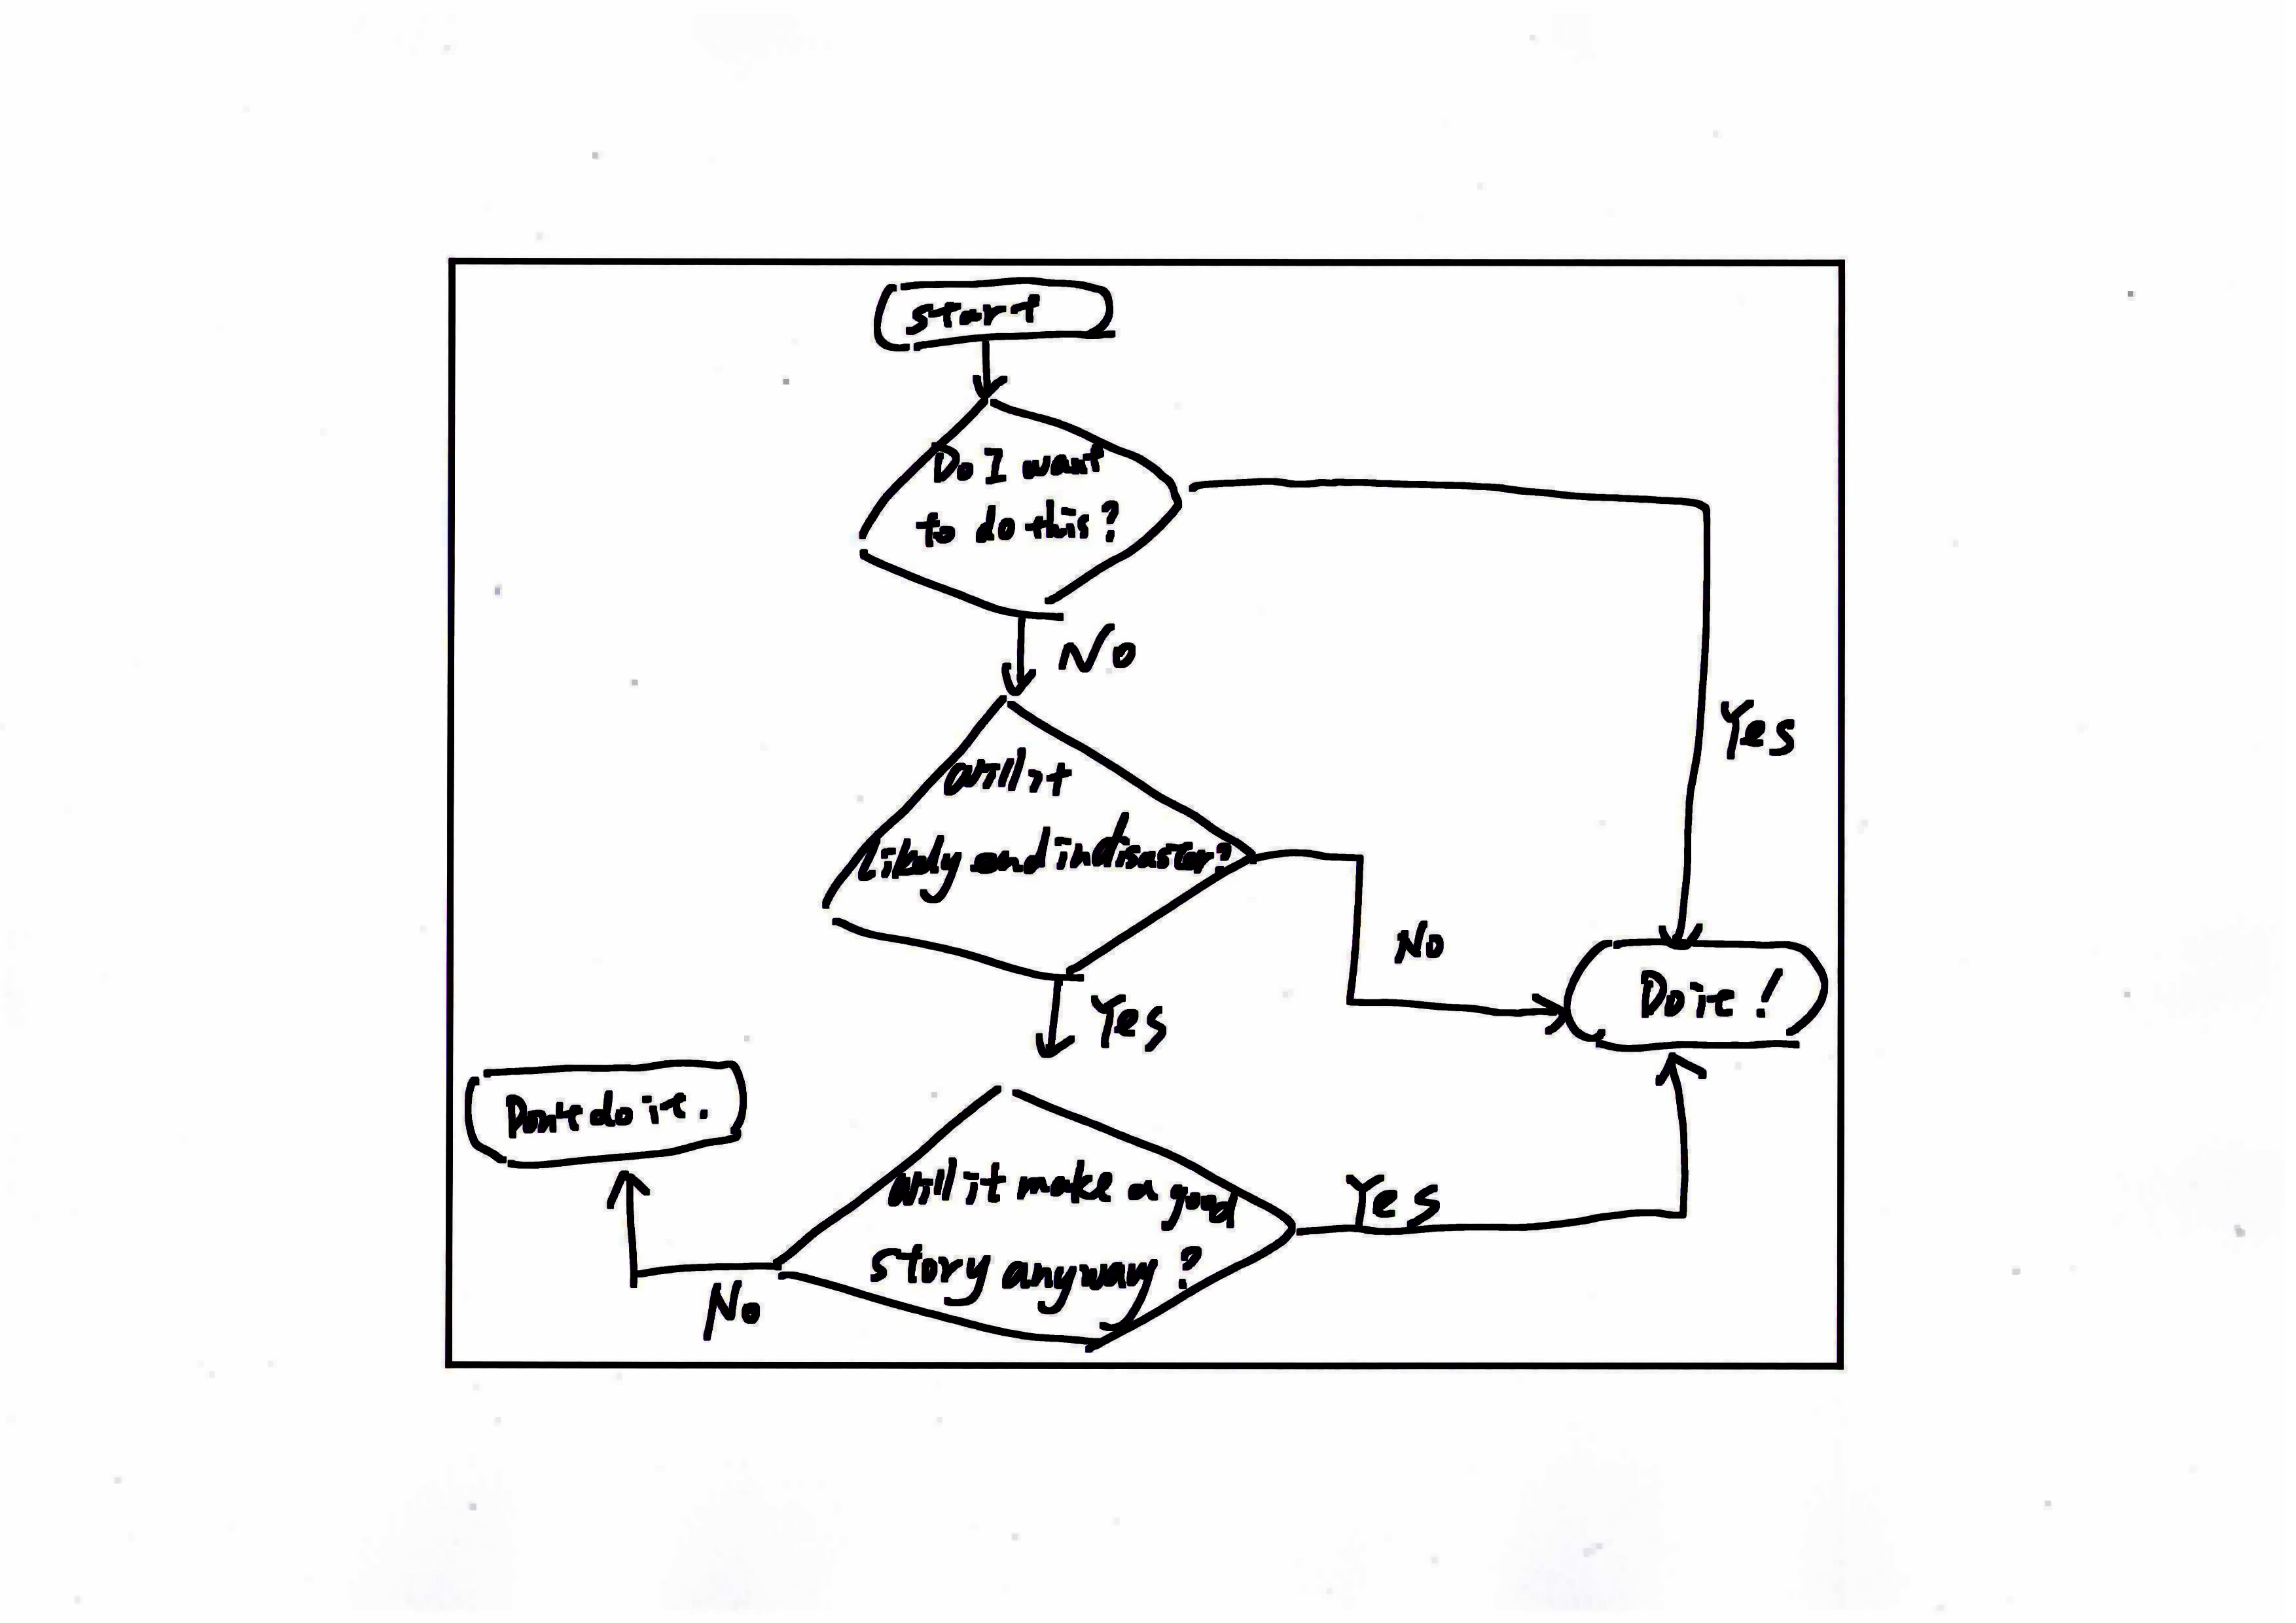 start
Do I want
to do this?
No
Yes
will it
likely end in disaster?
No
Do it!
Yes
Don't do it.
will it make a good
story anyway?
Yes
No